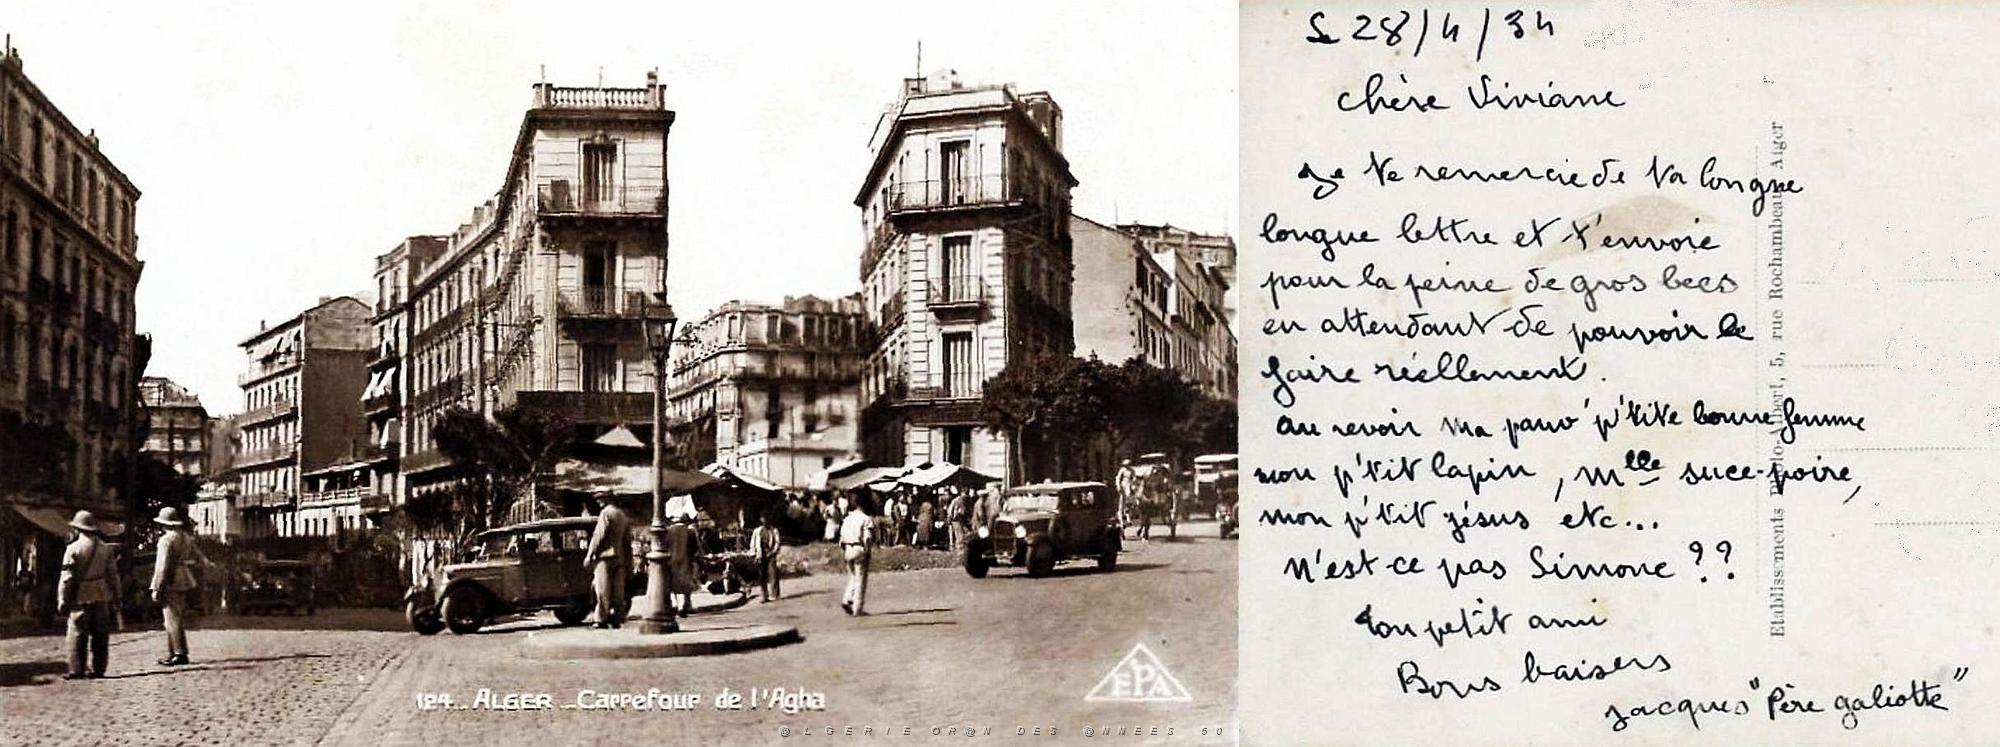 124_ ALGER _ Carrefour de l'Agha
EPA
@LGERIE OR@N DES @NNEES 50
Le 28/4/34
chère Viviane
Je te remercie de ta longue
longue lettre et t'envoie
pour la peine de gros becs
en attendant de pouvoir le
faire réellement.
au revoir ma pauv' p'tite bonne femme
mon p'tit lapin, Mlle suce-poire,
mon p'tit jésus etc...
N'est-ce pas Simone ??
Ton petit ami
Bons baisers
Jacques "Père galiotte"
Etablissements Photo-Albert, 5, rue Rochambeau Alger